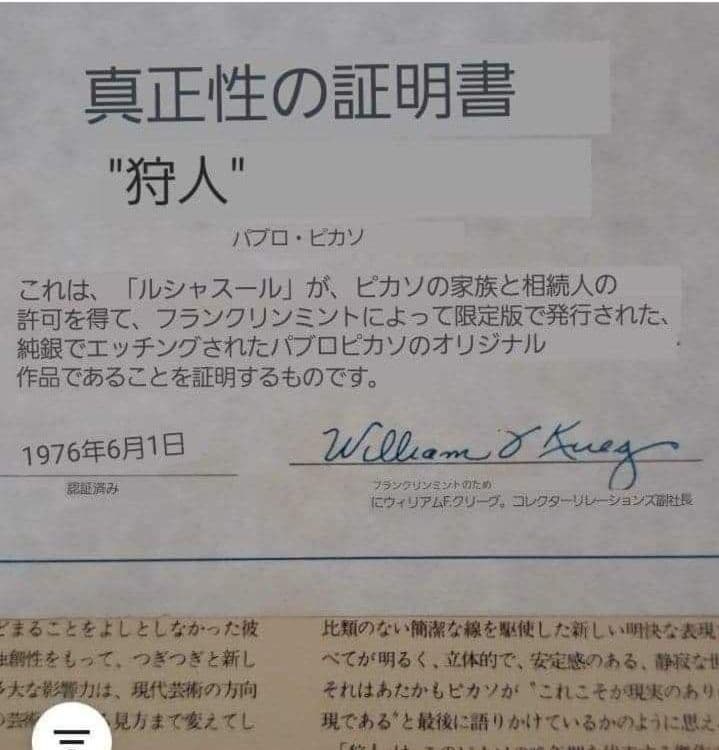 真正性の証明書
"狩人"
パブロ・ピカソ
これは、「ルシャスール」が、ピカソの家族と相続人の
許可を得て、フランクリンミントによって限定版で発行された、
純銀でエッチングされたパブロピカソのオリジナル
作品であることを証明するものです。
1976年6月1日
認証済み
William F Krieg
フランクリンミントのため
にウィリアムF.クリーグ。コレクターリレーションズ副社長
どまることをよしとしなかった彼
独創性をもって、つぎつぎと新し
多大な影響力は、現代芸術の方向
見方まで変えてし
比類のない簡潔な線を駆使した新しい明快な表現
べてが明るく、立体的で、安定感のある、静寂な世
それはあたかもピカソが“これこそが現実のあり
現である”と最後に語りかけているかのように思え